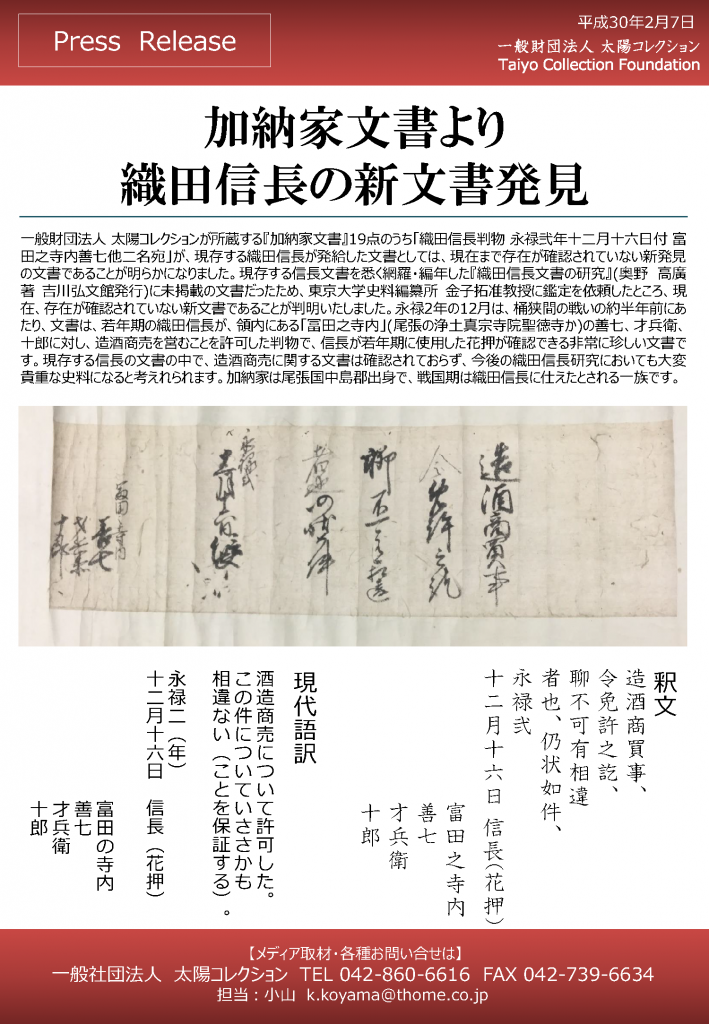 Press Release
平成30年2月7日
一般財団法人 太陽コレクション
Taiyo Collection Foundation
加納家文書より
織田信長の新文書発見
一般財団法人 太陽コレクションが所蔵する『加納家文書』19点のうち「織田信長判物 永禄弐年十二月十六日付 富
田之寺内善七他二名宛」が、現存する織田信長が発給した文書としては、現在まで存在が確認されていない新発見
の文書であることが明らかになりました。現存する信長文書を悉く網羅・編年した『織田信長文書の研究』(奥野 高廣
著 吉川弘文館発行)に未掲載の文書だったため、東京大学史料編纂所 金子拓准教授に鑑定を依頼したところ、現
在、存在が確認されていない新文書であることが判明いたしました。永禄2年の12月は、桶狭間の戦いの約半年前にあ
たり、文書は、若年期の織田信長が、領内にある「冨田之寺内」(尾張の浄土真宗寺院聖徳寺か)の善七、才兵衛、
十郎に対し、造酒商売を営むことを許可した判物で、信長が若年期に使用した花押が確認できる非常に珍しい文書で
す。現存する信長の文書の中で、造酒商売に関する文書は確認されておらず、今後の織田信長研究においても大変
貴重な史料になると考えれられます。加納家は尾張国中島郡出身で、戦国期は織田信長に仕えたとされる一族です。
造酒商買事
令免許之訖
聊不可有相違
者也仍状如件
永禄弐
十二月十六日
富田之寺内
善七
才兵衛
十郎
釈文
造酒商買事、
令免許之訖、
聊不可有相違
者也、仍状如件、
永禄弐
十二月十六日 信長(花押)
富田之寺内
善七
才兵衛
十郎
現代語訳
酒造商売について許可した。
この件についていささかも
相違ない(ことを保証する)。
永禄二(年)
十二月十六日 信長(花押)
富田の寺内
善七
才兵衛
十郎
【メディア取材・各種お問い合せは】
一般社団法人 太陽コレクション TEL 042-860-6616 FAX 042-739-6634
担当:小山 k.koyama@thome.co.jp